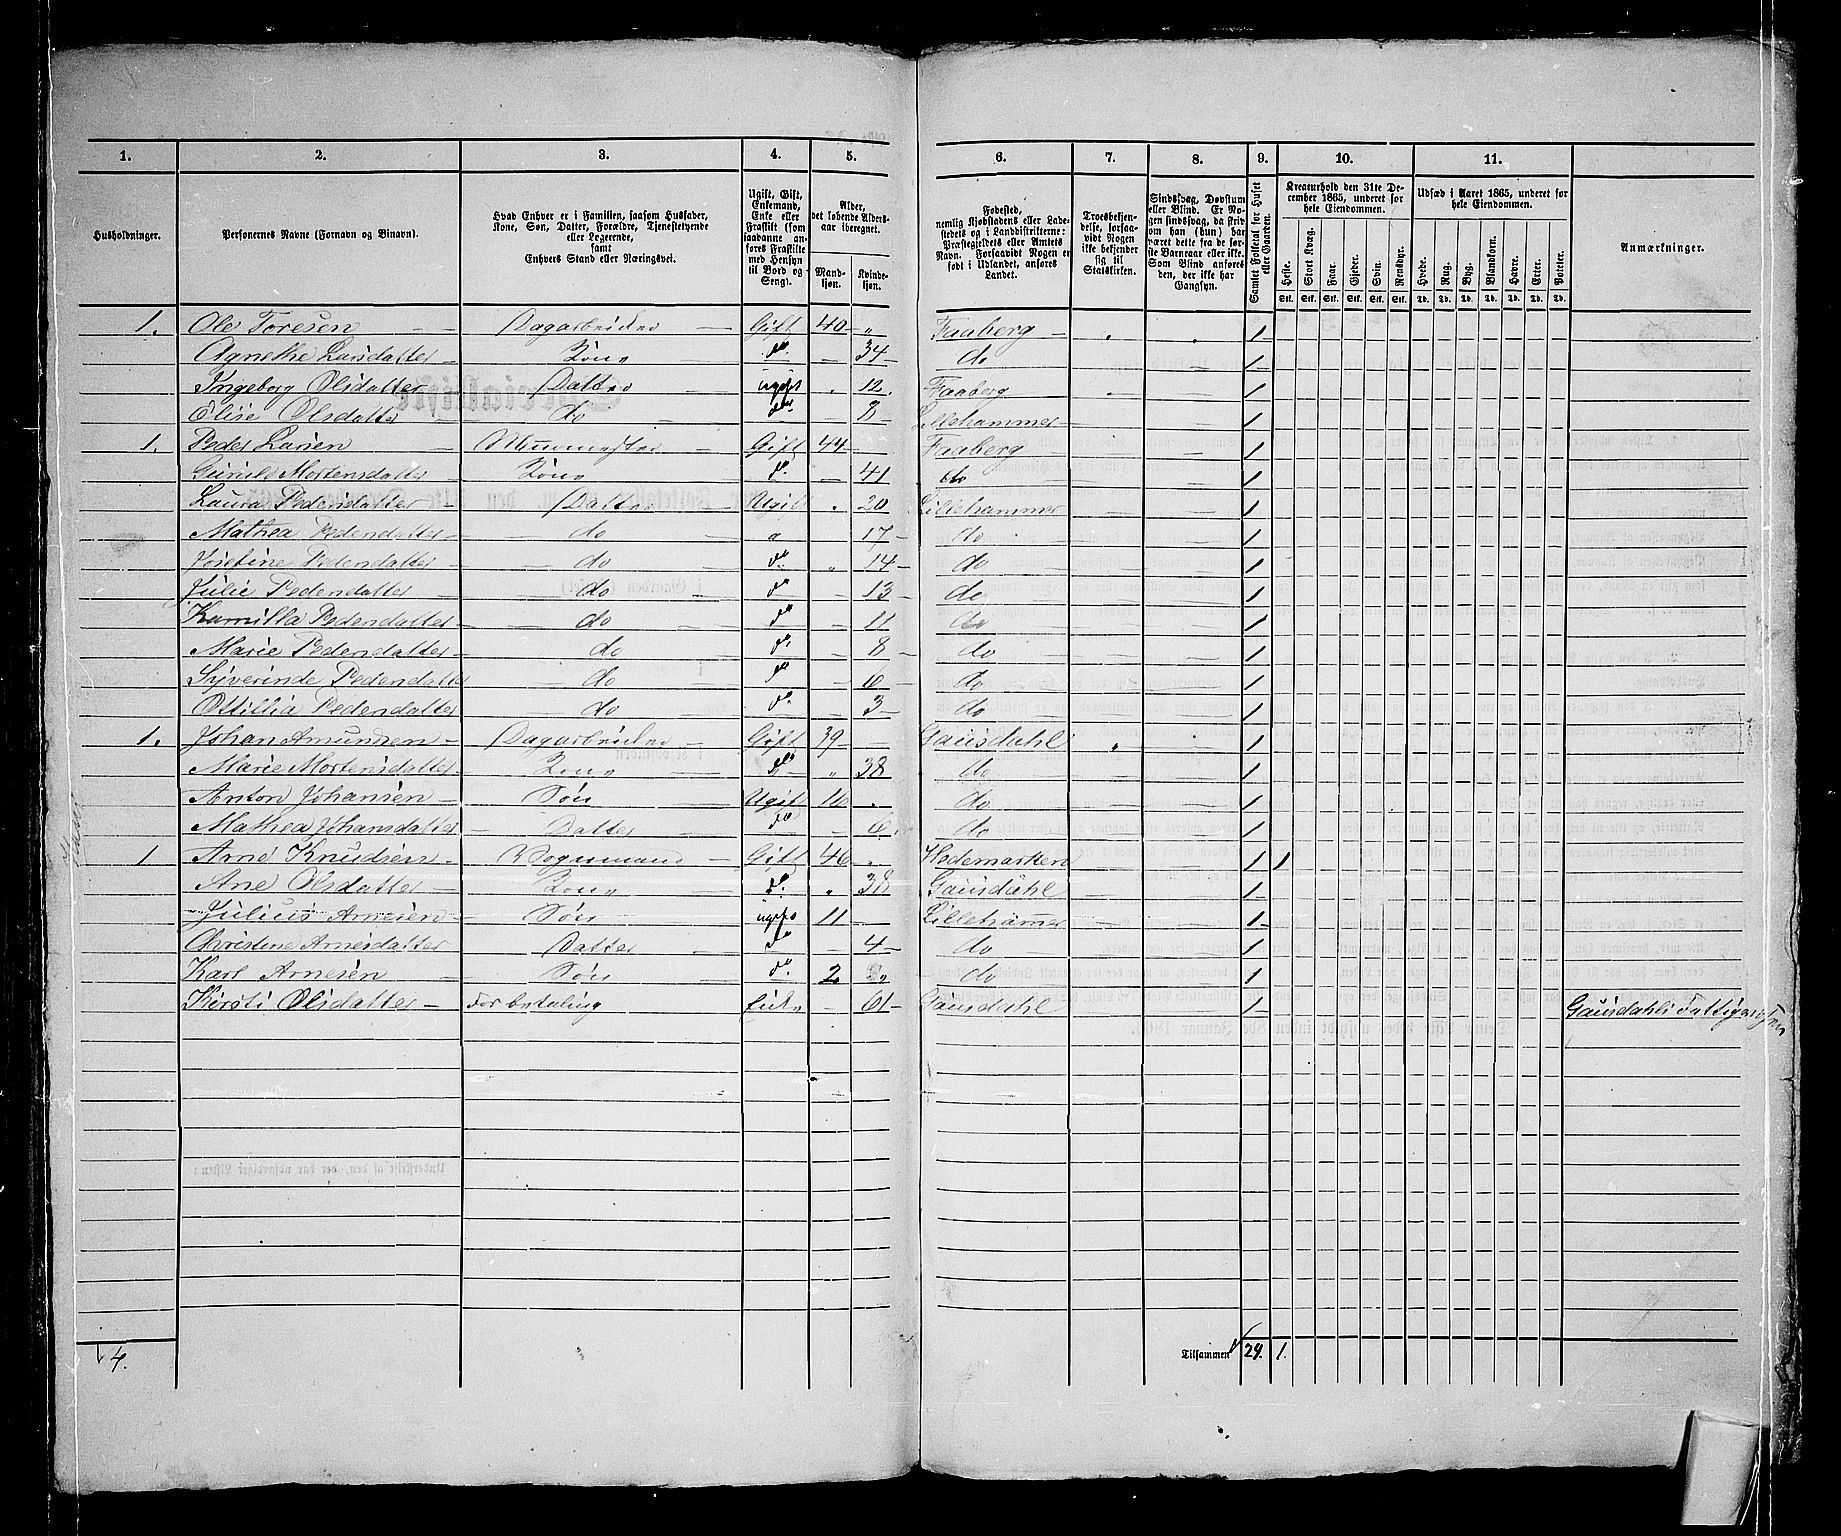 1. 2. 3. 4. 5. 6. 7. 8. 9. 10. 11.
Husholdninger.
Personernes Navne (Fornavn og Binavn).
Hvad Enhver er i Familien, saasom Husfader,
Kone, Søn, Datter, Forældre, Tjenestetyende
eller Logerende,
samt
Enhvers Stand eller Næringsvei.
Ugift, Gift,
Enkemand,
Enke eller
Fraskilt (som
saadanne an-
føres Fraskilte
med Hensyn
til Bord og
Seng).
Alder,
det løbende Alders-
aar iberegnet.
Mand-
kjøn.
Kvinde-
kjøn.
Fødested,
nemlig Kjøbstadens eller Lade-
stedets og i Landdistrikterne:
Præstegjeldets eller Amtets
Navn. Forsaavidt Nogen er
født i Udlandet, anføres
Landet.
Troesbekjen-
delse, forsaa-
vidt Nogen
ikke bekjender
sig til
Statskirken.
Sindssvag, Døvstum
eller Blind. Er No-
gen sindssvag, da skriv
om han (hun) har
været dette fra de før-
ste Barneaar eller ikke.
Som Blind anføres
den, der ikke har
Gangsyn.
Samlet Folketal for Huset
eller Gaarden.
Kreaturhold den 31te De-
cember 1865, underet for
hele Eiendommen.
Heste. Stort Kvæg. Faar. Gjeder. Svin. Rensdyr.
Stk. Stk. Stk. Stk. Stk. Stk.
Udsæd i Aaret 1865, underet for
hele Eiendommen.
Hvede. Rug. Byg. Blandkorn. Havre. Erter. Poteter.
Td. Td. Td. Td. Td. Td. Td.
Anmærkninger.
1. Ole Toresen Dagarbeider Gift 40 „ Faaberg 1
Agnethe Larsdatter Kone do. 34 do 1
Ingeborg Olsdatter Datter ugift 12. Faaberg 1
Elise Olsdatter do do. 8 Lillehammer 1
1. Peder Larsen Muurmester Gift 44 Faaberg 1
Gunild Mortensdatter Kone do. 41 do 1
Laura Pedersdatter Datter Ugift 20 Lillehammer 1
Mathea Pedersdatter do 17 do 1
Josefine Pedersdatter do do. „ 14 do 1
Julie Pedersdatter do do 13 do 1
Kamilla Pedersdatter do do 11 do 1
Marie Pedersdatter do do. 8 do 1
Syverinde Pedersdatter do do 6 do 1
Ottillia Pedersdatter do do. 3 do 1
1. Johan Amundsen Dagarbeider Gift 39 Gausdahl 1
Marie Mortensdatter Kone do „ 38 do 1
Anton Johansen Søn Ugift 16 do 1
Mathea Johansdatter Datter do 6. do 1
1 Arne Knudsen Vognmand Gift 46 Hedemarken 1 1
Ane Olsdatter Kone do. „ 38 Gausdahl 1
Julius Arnesen Søn ugift 11 Lillehammer 1
Christine Arnesdatter Datter do 4 do 1
Karl Arnesen Søn do. 2 „ do 1
Kirsti Olsdatter For betaling Enke 61 Gausdahl 1
4.
Tilsammen 24. 1.